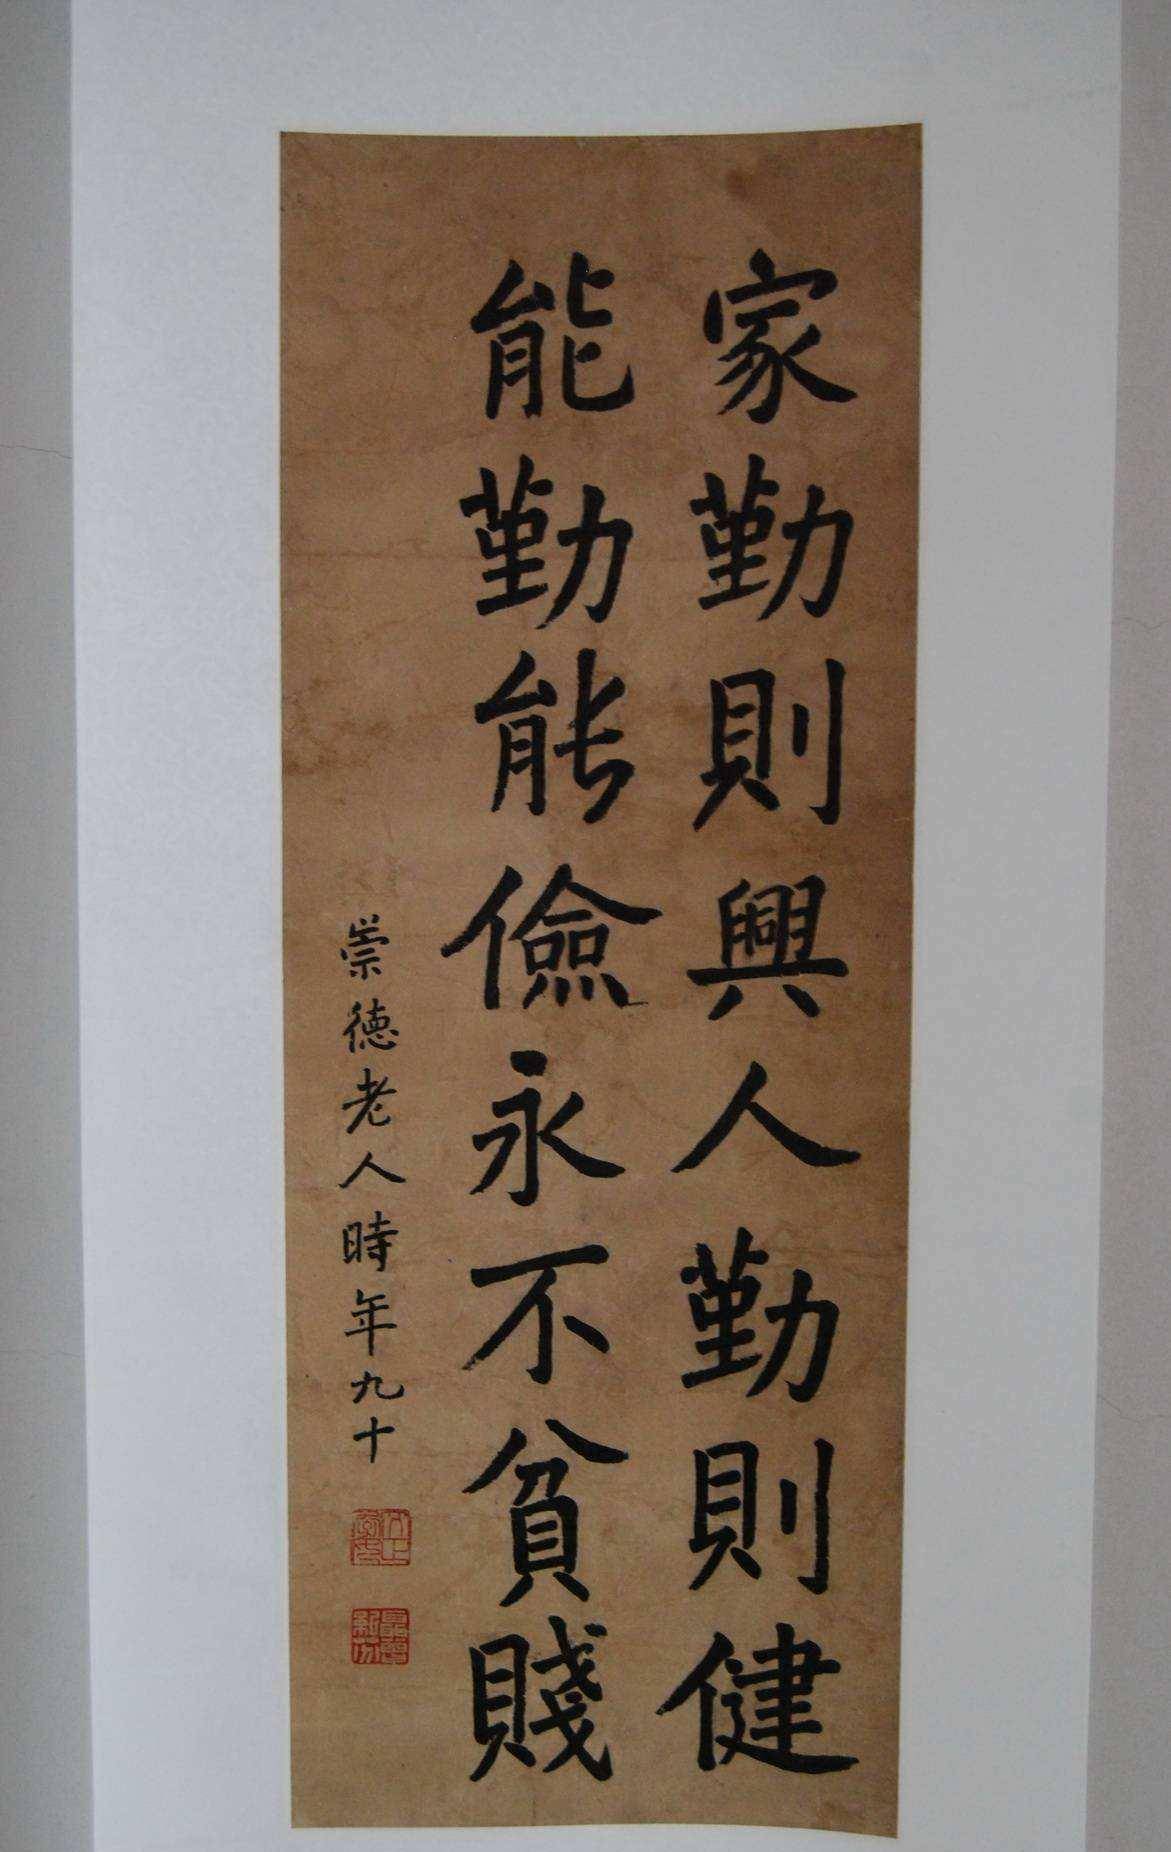 家勤則興人勤則健
能勤能儉永不貧賤
崇德老人時年九十